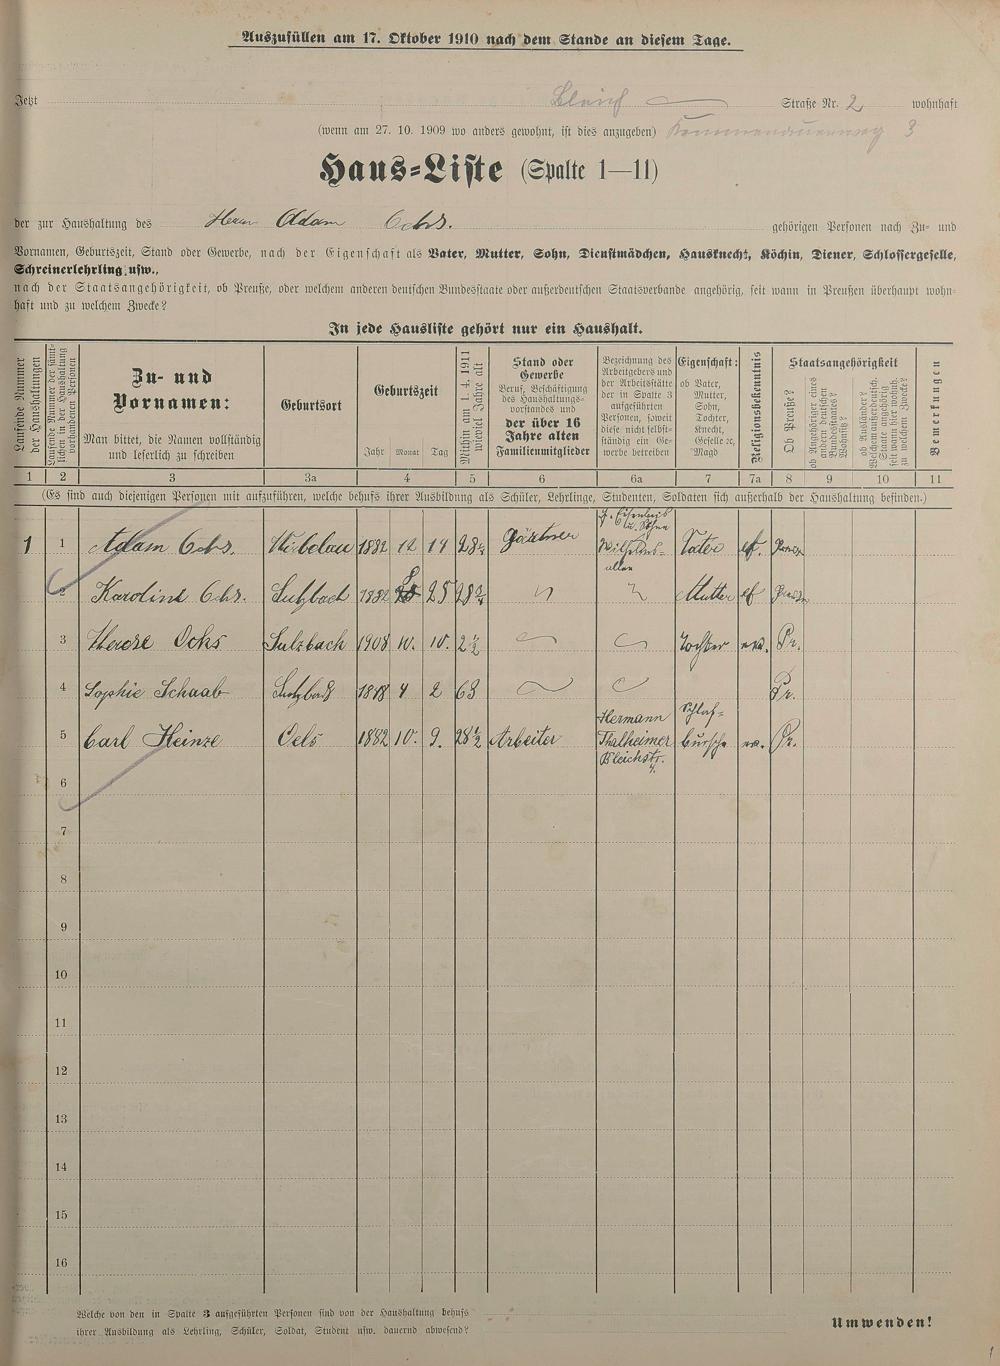 Auszufüllen am 17. Oktober 1910 nach dem Stande an diesem Tage.
Jetzt Bleich Straße Nr. 2 wohnhaft
(wenn am 27. 10. 1909 wo anders gewohnt, ist dies anzugeben) 3
Haus-Liste (Spalte 1—11)
der zur Haushaltung des Herrn Adam Ochs. gehörigen Personen nach Zu- und
Vornamen, Geburtszeit, Stand oder Gewerbe, nach der Eigenschaft als Vater, Mutter, Sohn, Dienstmädchen, Hausknecht, Köchin, Diener, Schlossergeselle,
Schreinerlehrling usw.,
nach der Staatsangehörigkeit, ob Preuße, oder welchem anderen deutschen Bundesstaate oder außerdeutschen Staatsverbande angehörig, seit wann in Preußen überhaupt wohn-
haft und zu welchem Zwecke?
In jede Hausliste gehört nur ein Haushalt.
Laufende Nummer der Haushaltungen
Laufende Nummer der sämt-
lichen in der Haushaltung
vorhandenen Personen
Zu- und
Vornamen:
Man bittet, die Namen vollständig
und leserlich zu schreiben
Geburtsort
Geburtszeit
Jahr Monat Tag
Mithin am 1. 4. 1911
wieviel Jahre alt
Stand oder
Gewerbe
Beruf, Beschäftigung
des Haushaltungs-
vorstandes und
der über 16
Jahre alten
Familienmitglieder
Bezeichnung des
Arbeitgebers und
der Arbeitsstätte
der in Spalte 3
aufgeführten
Personen, soweit
diese nicht selbst-
ständig ein Ge-
werbe betreiben
Eigenschaft:
ob Vater,
Mutter,
Sohn,
Tochter,
Knecht,
Geselle ꝛc,
Magd
Religionsbekenntnis
Staatsangehörigkeit
Ob Preuße?
ob Angehöriger eines
andern deutschen
Bundesstaates?
Wohnsitz?
ob Ausländer?
Welchem außerdeutsch.
Staate angehörig
seit wann hier wohnh.
zu welchem Zwecke?
Bemerkungen
1 2 3 3a 4 5 6 6a 7 7a 8 9 10 11
(Es sind auch diejenigen Personen mit aufzuführen, welche behufs ihrer Ausbildung als Schüler, Lehrlinge, Studenten, Soldaten sich außerhalb der Haushaltung befinden.)
1 1 Adam Ochs. 1882 12 14 28¼ Gärtner Wilhelms-
allee Vater ef.
2 Karoline Ochs. Sulzbach 1882 25 28 " Mutter ef
3 Therese Ochs Sulzbach 1908 10. 10. 2½ Tochter ev. Pr.
4 Sophie Schaab Sulzbach 1848 4 2 63 Pr.
5 Carl Heinze Oels 1882 10. 9. 28½ Arbeiter Hermann
Thalheimer
Bleichstr.
4. Schlaf-
bursche ev. Pr.
6
7
8
9
10
11
12
13
14
15
16
Welche von den in Spalte 3 aufgeführten Personen sind von der Haushaltung behufs
ihrer Ausbildung als Lehrling, Schüler, Soldat, Student usw. dauernd abwesend?
Umwenden!
1